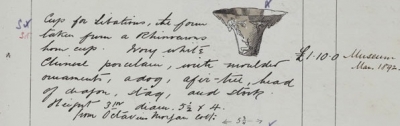 Cup for Libations, the form
taken from a Rhinoceros
horn cup. Ivory white
Chinese porcelain, with moulded
ornaments, a dog, a fir-tree, head
of dragon, stag, and stork.
Height 3 in diam. 5½ x 4.
from Octavius Morgan Coll:
£1.10.0
Museum
Mar. 1892.